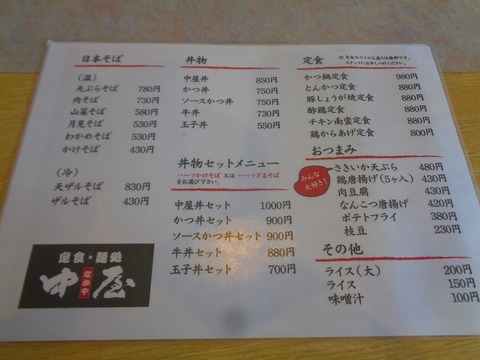 日本そば
（温）
天ぷらそば 780円
肉そば 730円
山菜そば 580円
月見そば 530円
わかめそば 530円
かけそば 430円
（冷）
天ザルそば 830円
ザルそば 430円
定食・麺処
中屋
なかや
丼物
中屋丼 850円
かつ丼 750円
ソースかつ丼 750円
牛丼 730円
玉子丼 550円
丼物セットメニュー
ハーフかけそば 又は ハーフざるそば
をお選び下さい。
中屋丼セット 1000円
かつ丼セット 900円
ソースかつ丼セット 900円
牛丼セット 880円
玉子丼セット 700円
定食
※ 定食のライス大盛りは無料です。
スタッフにお申しつけください。
かつ鍋定食 980円
とんかつ定食 880円
豚しょうが焼定食 880円
酢鶏定食 880円
チキン南蛮定食 880円
鶏からあげ定食 800円
おつまみ
みんな
大好き！
さきいか天ぷら 480円
鶏唐揚げ（5ヶ入） 430円
肉豆腐 430円
なんこつ唐揚げ 420円
ポテトフライ 380円
枝豆 230円
その他
ライス（大） 200円
ライス 150円
味噌汁 100円